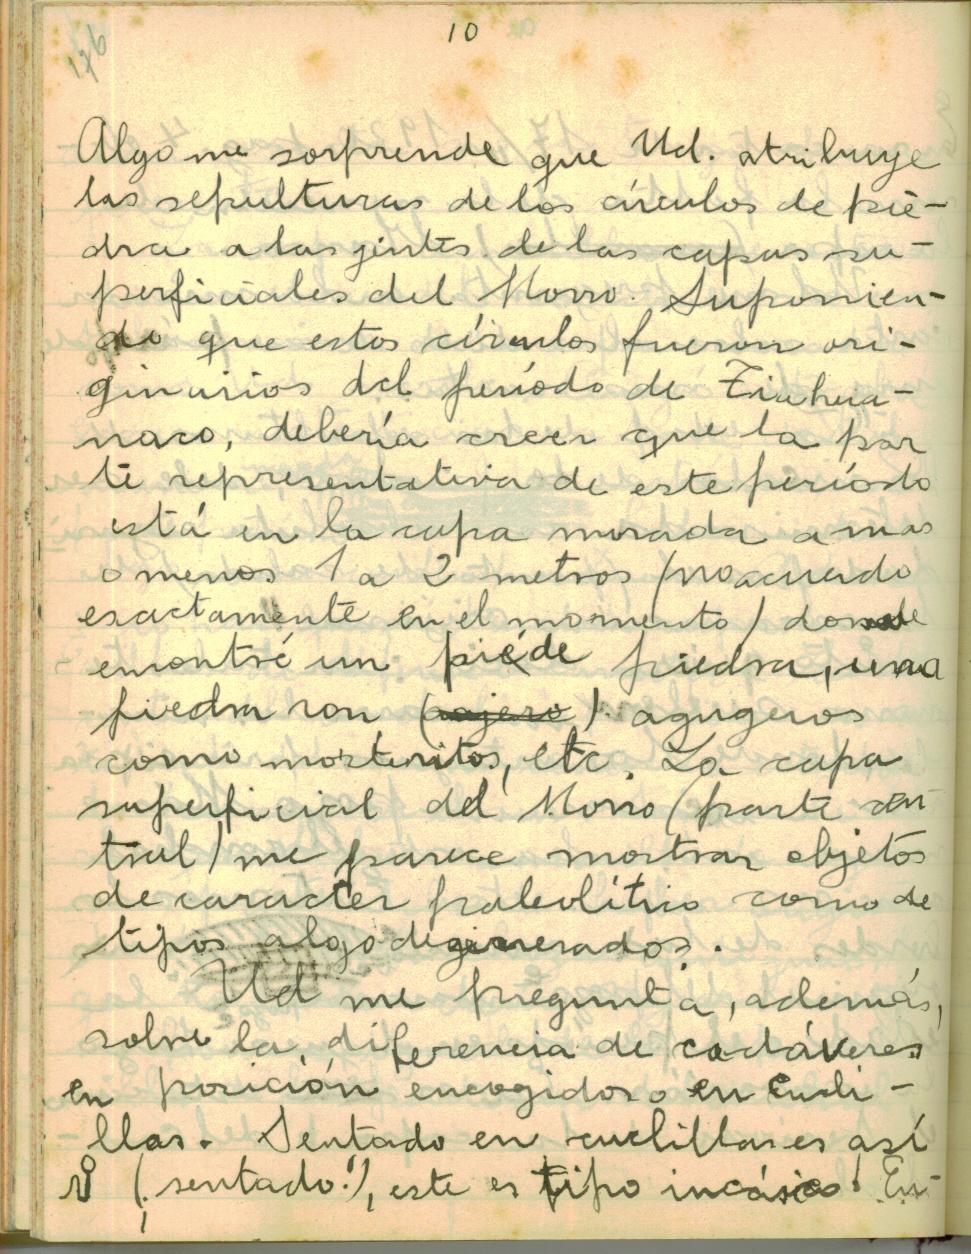 10
176
Algo me sorprende que Ud. atribuye
las sepulturas de los círculos de pie-
dra a las jentes de las capas su-
perficiales del Morro. Suponien-
do que estos círculos fueron ori-
ginarios del período de Tiahua-
naco, debería creer que la par
te representativa de este período
está en la capa morada a mas
o menos 1 a 2 metros (no acuerdo
exactamente en el momento) donde
encontré un pié de piedra, una
piedra con () agugeros
como morteritos, etc. La capa
superficial del Morro (parte cen
tral) me parece mostrar objetos
de caracter paleolítico como de
tipos algo degenerados.
Ud me pregunta, además,
sobre la diferencia de cadáveres
en posición encogidos o en cucli-
llas. Sentado en cuclillas es así
(¡sentado!), este es tipo incásico! En-